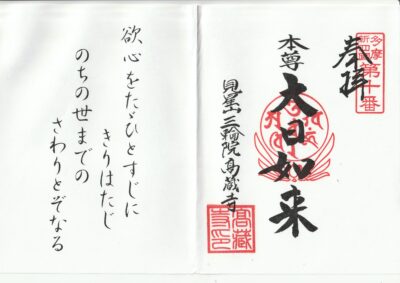 多摩新四国第十番
奉拝
本尊
大日如来
見星山三輪院高蔵寺
高藏寺印
欲心をたゞひとすじに
きりはたじ
のちの世までの
さわりとぞなる